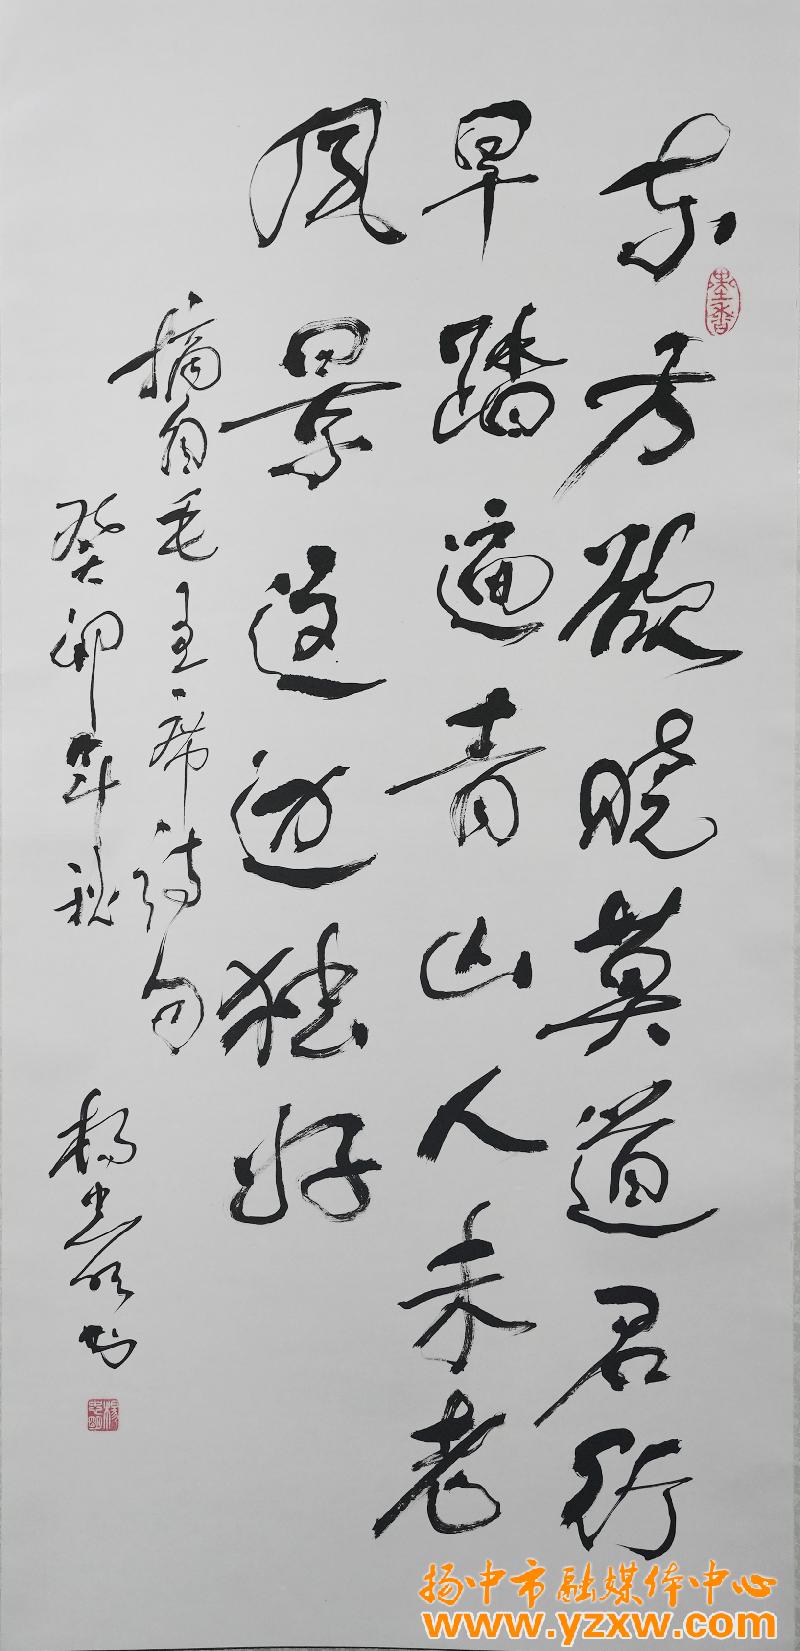 东方欲晓莫道君行
早踏遍青山人未老
风景这边独好
摘自毛主席诗句
癸卯年秋
杨忠明书
墨香
楊忠明
扬中市融媒体中心
www.yzxw.com